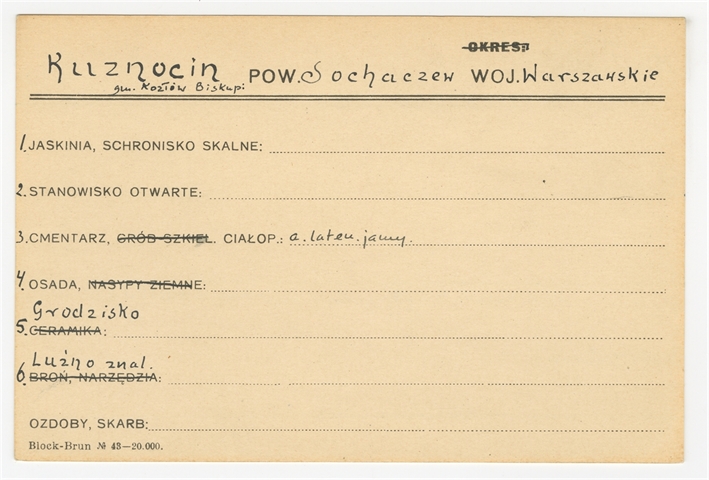 OKRES:
Kuznocin POW. Sochaczew WOJ. Warszawskie
gm. Kozłów Biskupi
1. JASKINIA, SCHRONISKO SKALNE:
2. STANOWISKO OTWARTE:
3. CMENTARZ, GRÓB SZKIEL. CIAŁOP.: a. laten. jamy.
4. OSADA, NASYPY ZIEMNE:
Grodzisko
5. CERAMIKA:
Luźno znal.
6. BROŃ, NARZĘDZIA:
OZDOBY, SKARB:
Block-Brun № 43—20.000.